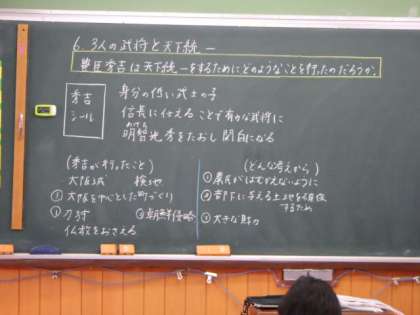 6. 3人の武将と天下統一
豊臣秀吉は天下統一をするためにどのようなことを行ったのだろうか。
秀吉
シール
身分の低い武士の子
信長に仕えることで有力な武将に
あけち
明智光秀をたおし 関白になる
(秀吉が行ったこと)
大阪城 検地
③大阪を中心とした町づくり
①刀狩 ②朝鮮侵略
仏教をおさえる
(どんな考えから)
①農民がはむかえないように
②部下に与える土地を確保
するため
③大きな財力